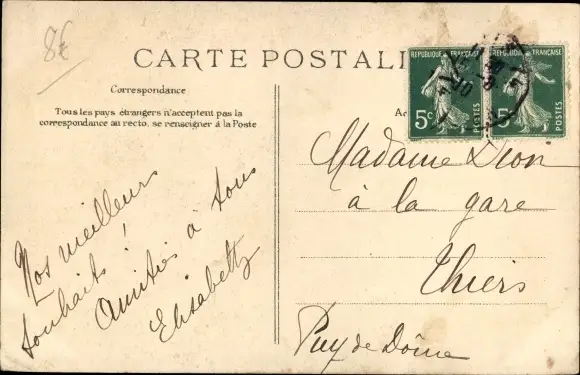 8€
CARTE POSTALE
Correspondance
Tous les pays étrangers n'acceptent pas la
correspondance au recto, se renseigner à la Poste
Nos meilleurs
souhaits !
Amitiés à tous
Elisabeth
REPUBLIQUE FRANÇAISE
5c
POSTES
REPUBLIQUE FRANÇAISE
5
POSTES
Madame Dion
à la gare
Thiers
Puy de Dôme